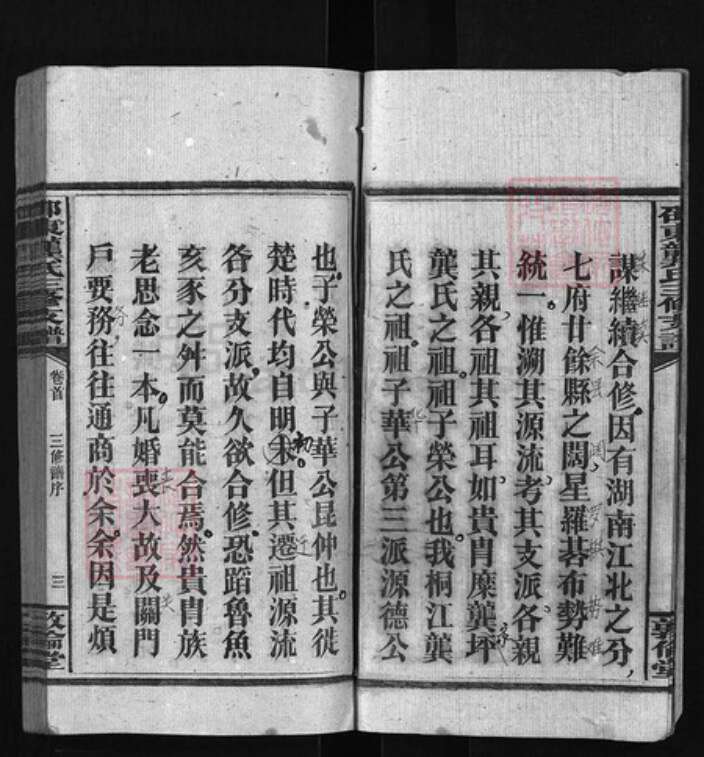 謀繼續合修因有湖南江北之分
七府廿餘縣之闊星羅碁布勢難
統一惟溯其源流考其支派各親
其親各祖其祖耳如貴胄糜龔坪
龔氏之祖祖子榮公也我桐江龔
氏之祖祖子華公第三派源德公
也子榮公與子華公昆仲也其徙
楚時代均自明末但其遷祖源流
各分支派故久欲合修恐蹈魯魚
亥豕之舛而莫能合焉然貴胄族
老思念一本凡婚喪大故及關門
戶要務往往通商於余余因是煩
邵東龔氏三修支譜
卷首
三修譜序
三
敦倫堂